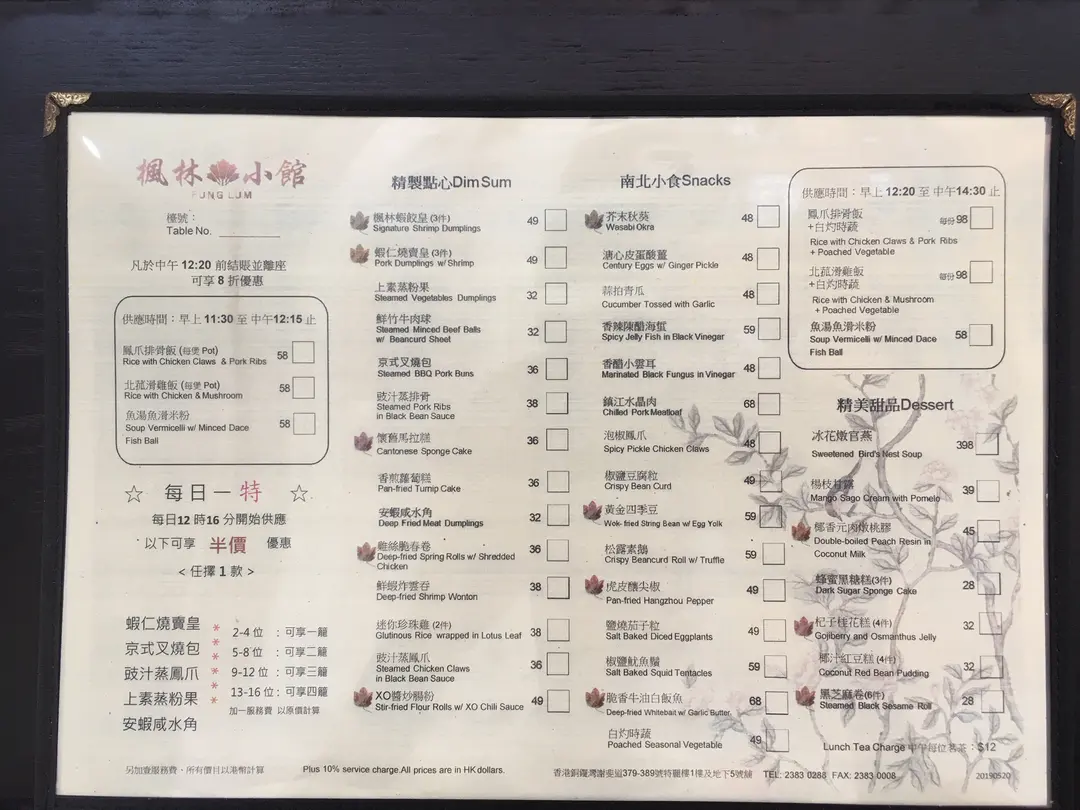 楓林小館
FUNG LUM
檯號：
Table No.
凡於中午 12:20 前結賬並離座
可享 8 折優惠
供應時間：早上 11:30 至 中午12:15 止
鳳爪排骨飯 (每煲 Pot)
Rice with Chicken Claws & Pork Ribs
58
北菰滑雞飯 (每煲 Pot)
Rice with Chicken & Mushroom
58
魚湯魚滑米粉
Soup Vermicelli w/ Minced Dace
Fish Ball
58
☆ 每日一特 ☆
每日12 時16 分開始供應
以下可享 半價 優惠
< 任擇 1 款 >
蝦仁燒賣皇
京式叉燒包
豉汁蒸鳳爪
上素蒸粉果
安蝦咸水角
* 2-4 位 ：可享一籠
* 5-8 位 ：可享二籠
* 9-12 位：可享三籠
* 13-16 位：可享四籠
加一服務費 以原價計算
精製點心Dim Sum
楓林蝦餃皇 (3件) 49
Signature Shrimp Dumplings
蝦仁燒賣皇 (3件) 49
Pork Dumplings w/ Shrimp
上素蒸粉果 32
Steamed Vegetables Dumplings
鮮竹牛肉球
Steamed Minced Beef Balls
w/ Beancurd Sheet
32
京式叉燒包 36
Steamed BBQ Pork Buns
豉汁蒸排骨
Steamed Pork Ribs
in Black Bean Sauce
38
懷舊馬拉糕 36
Cantonese Sponge Cake
香煎蘿蔔糕 36
Pan-fried Turnip Cake
安蝦咸水角 32
Deep Fried Meat Dumplings
雞絲脆春卷 36
Deep-fried Spring Rolls w/ Shredded
Chicken
鮮蝦炸雲吞 38
Deep-fried Shrimp Wonton
迷你珍珠雞 (2件) 38
Glutinous Rice wrapped in Lotus Leaf
豉汁蒸鳳爪
Steamed Chicken Claws
in Black Bean Sauce
36
XO醬炒腸粉 49
Stir-fried Flour Rolls w/ XO Chili Sauce
南北小食Snacks
芥末秋葵 48
Wasabi Okra
溏心皮蛋酸薑 48
Century Eggs w/ Ginger Pickle
蒜拍青瓜 48
Cucumber Tossed with Garlic
香辣陳醋海蜇 59
Spicy Jelly Fish in Black Vinegar
香醋小雲耳 48
Marinated Black Fungus in Vinegar
鎮江水晶肉 68
Chilled Pork Meatloaf
泡椒鳳爪 48
Spicy Pickle Chicken Claws
椒鹽豆腐粒 49
Crispy Bean Curd
黃金四季豆 59
Wok- fried String Bean w/ Egg Yolk
松露素鵝 59
Crispy Beancurd Roll w/ Truffle
虎皮釀尖椒 49
Pan-fried Hangzhou Pepper
鹽燒茄子粒 49
Salt Baked Diced Eggplants
椒鹽魷魚鬚 59
Salt Baked Squid Tentacles
脆香牛油白飯魚 68
Deep-fried Whitebait w/ Garlic Butter
白灼時蔬 49
Poached Seasonal Vegetable
供應時間：早上 12:20 至 中午14:30 止
鳳爪排骨飯
+白灼時蔬 每份98
Rice with Chicken Claws & Pork Ribs
+ Poached Vegetable
北菰滑雞飯
+白灼時蔬 每份98
Rice with Chicken & Mushroom
+ Poached Vegetable
魚湯魚滑米粉 58
Soup Vermicelli w/ Minced Dace
Fish Ball
精美甜品Dessert
冰花燉官燕 398
Sweetened Bird's Nest Soup
楊枝甘露 39
Mango Sago Cream with Pomelo
椰香元肉燉桃膠 45
Double-boiled Peach Resin in
Coconut Milk
蜂蜜黑糖糕(3件) 28
Dark Sugar Sponge Cake
杞子桂花糕 (4件) 32
Gojiberry and Osmanthus Jelly
椰汁紅豆糕 (4件) 32
Coconut Red Bean Pudding
黑芝麻卷(6件) 28
Steamed Black Sesame Roll
Lunch Tea Charge 中午每位茗茶：$12
另加壹服務費，所有價目以港幣計算
Plus 10% service charge.All prices are in HK dollars.
香港銅鑼灣謝斐道379-389號特麗樓1樓及地下5號舖 TEL: 2383 0288 FAX: 2383 0008
20190520